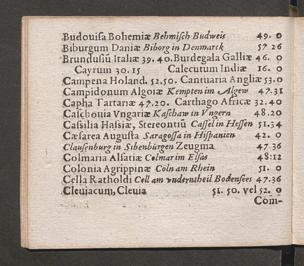 Budouisa Bohemiæ Behmisch Budweis 49. 0
Biburgum Daniæ Biborg in Denmarck 57 26
Brundusiū Italiæ 39. 40. Burdegala Galliæ 46. 0
Cayrum 30. 15 Calecutum Indiæ 16. 0
Campena Holand. 52. 50. Cantuaria Angliæ 53. 0
Campidonum Algoiæ Kempten im Algew 47. 31
Capha Tartariæ 47. 20. Carthago Africæ 32. 40
Caschouia Vngariæ Kaschaw in Vngern 48. 20
Cassilia Hassiæ, Stereontiū Cassel in Hessen 51. 34
Cæsarea Augusta Saragossa in Hispanien 42. 0
Clausenburg in Sibenbürgen Zeugma 47. 36
Colmaria Alsatiæ Colmar im Elsas 48: 12
Colonia Agrippinæ Coln am Rhein 51. 0
Cella Ratholdi Cell am vnderntheil Bodensees 47. 36
Cleuiacum, Cleuia 51. 50. vel 52. 0
Com-